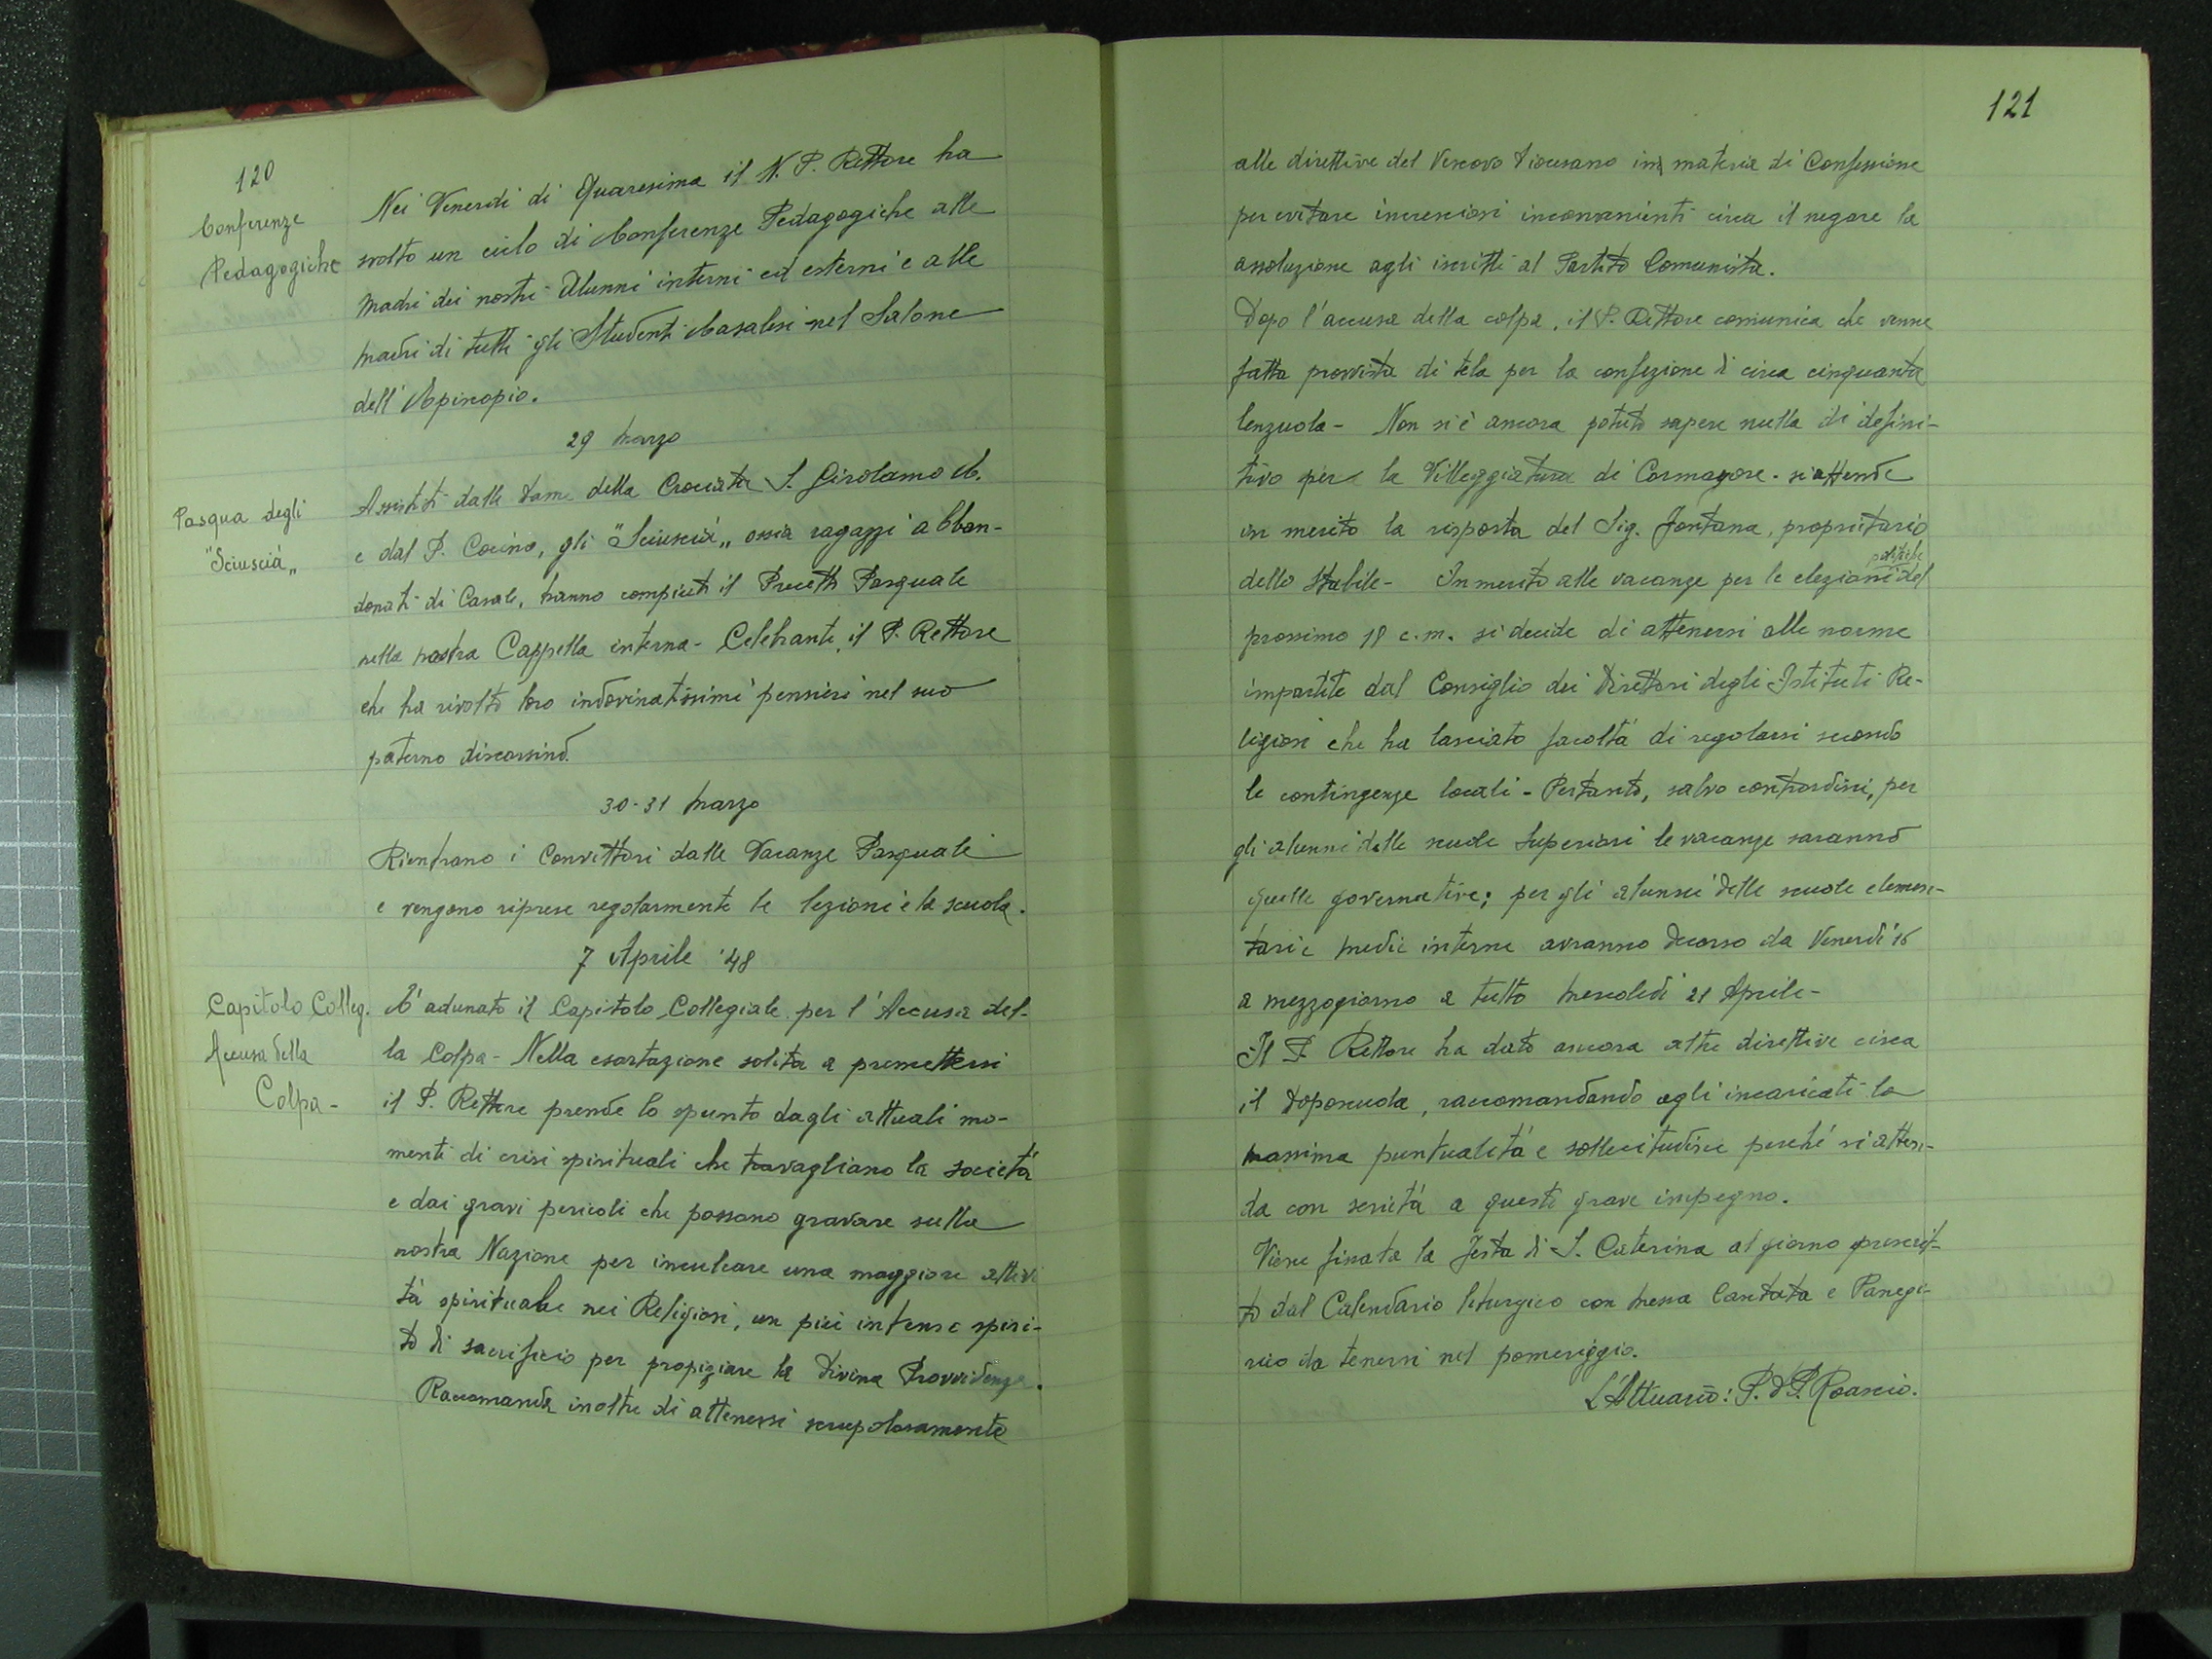 120
Conferenze
Pedagogiche
Nei Venerdì di Quaresima il N. P. Rettore ha
svolto un ciclo di Conferenze Pedagogiche alle
Madri dei nostri Alunni interni ed esterni e alle
Madri di tutti gli Studenti Casalesi nel Salone
dell'Episcopio.
29 Marzo
Pasqua degli
"Sciuscià„
Assistiti dalle Dame della Crociata S. Girolamo E.
e dal P. Cocino, gli "Sciuscià„ ossia ragazzi abban-
donati di Casale, hanno compiuto il Precetto Pasquale
nella nostra Cappella interna - Celebrante, il P. Rettore
che ha rivolto loro indovinatissimi pensieri nel suo
paterno discorsino.
30-31 Marzo
Rientrano i Convittori dalle Vacanze Pasquali
e vengono riprese regolarmente le lezioni e la scuola.
7 Aprile '48
Capitolo Colleg.
Accusa della
Colpa -
E' adunato il Capitolo Collegiale per l'Accusa del-
la Colpa - Nella esortazione solita a premettersi
il P. Rettore prende lo spunto dagli attuali mo-
menti di crisi spirituali che travagliano la società
e dai gravi pericoli che possono gravare sulla
nostra Nazione per inculcare una maggiore attivi
tà spirituale nei Religiosi, un più intenso spiri-
to di sacrificio per propiziare la Divina Provvidenza.
Raccomanda inoltre di attenersi scrupolosamente
121
alle direttive del Vescovo Diocesano in materia di Confessione
per evitare incresciosi inconvenienti circa il negare la
assoluzione agli iscritti al Partito Comunista.
Dopo l'accusa della colpa, il P. Rettore comunica che venne
fatta provvista di tela per la confezione di circa cinquanta
lenzuola - Non si è ancora potuto sapere nulla di defini-
tivo per la Villeggiatura di Cormayore - si attende
in merito la risposta del Sig. Fontana, proprietario
dello stabile - In merito alle vacanze per le elezioni politiche del
prossimo 18 c.m. si decide di attenersi alle norme
impartite dal Consiglio dei Direttori degli Istituti Re-
ligiosi che ha lasciato facoltà di regolarsi secondo
le contingenze locali - Pertanto, salvo contrordini, per
gli alunni delle scuole Superiori le vacanze saranno
quelle governative; per gli alunni delle scuole elemen-
tari e medie interne avranno decorso da Venerdì 16
a mezzogiorno a tutto Mercoledì 21 Aprile -
Il P. Rettore ha dato ancora altre direttive circa
il Doposcuola, raccomandando agli incaricati la
massima puntualità e sollecitudine perché si atten-
da con serietà a questo grave impegno.
Viene fissata la Festa di S. Caterina al giorno prescrit-
to dal Calendario liturgico con Messa Cantata e Panegi-
rico da tenersi nel pomeriggio.
L'Attuario: P. d. P. Roascio.